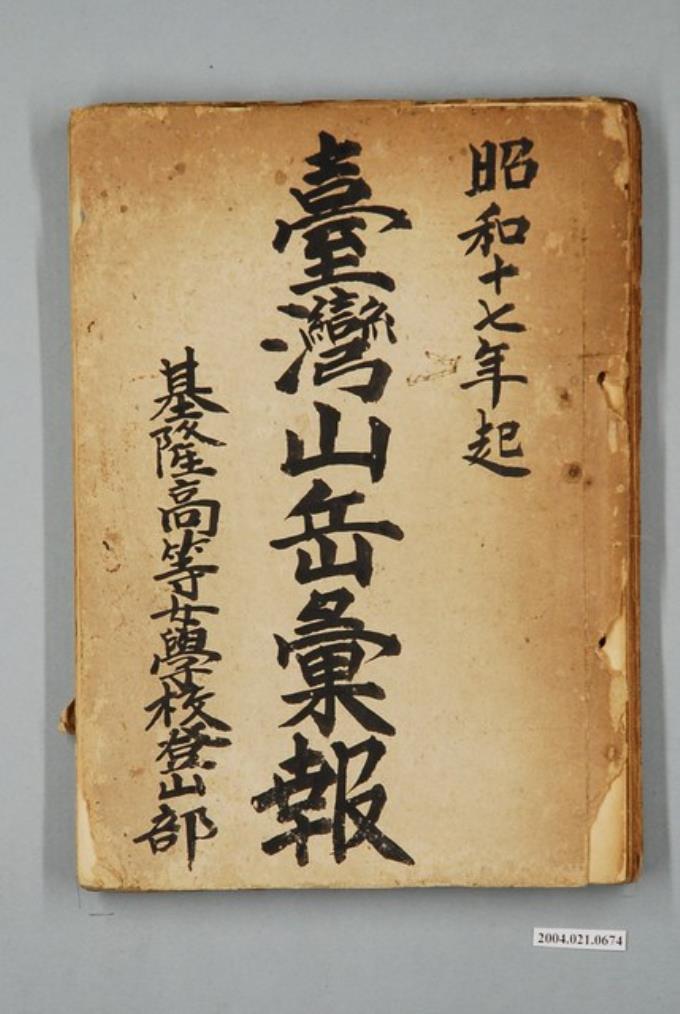 昭和十七年起
臺灣山岳彙報
基隆高等女學校登山部
2004.021.0674